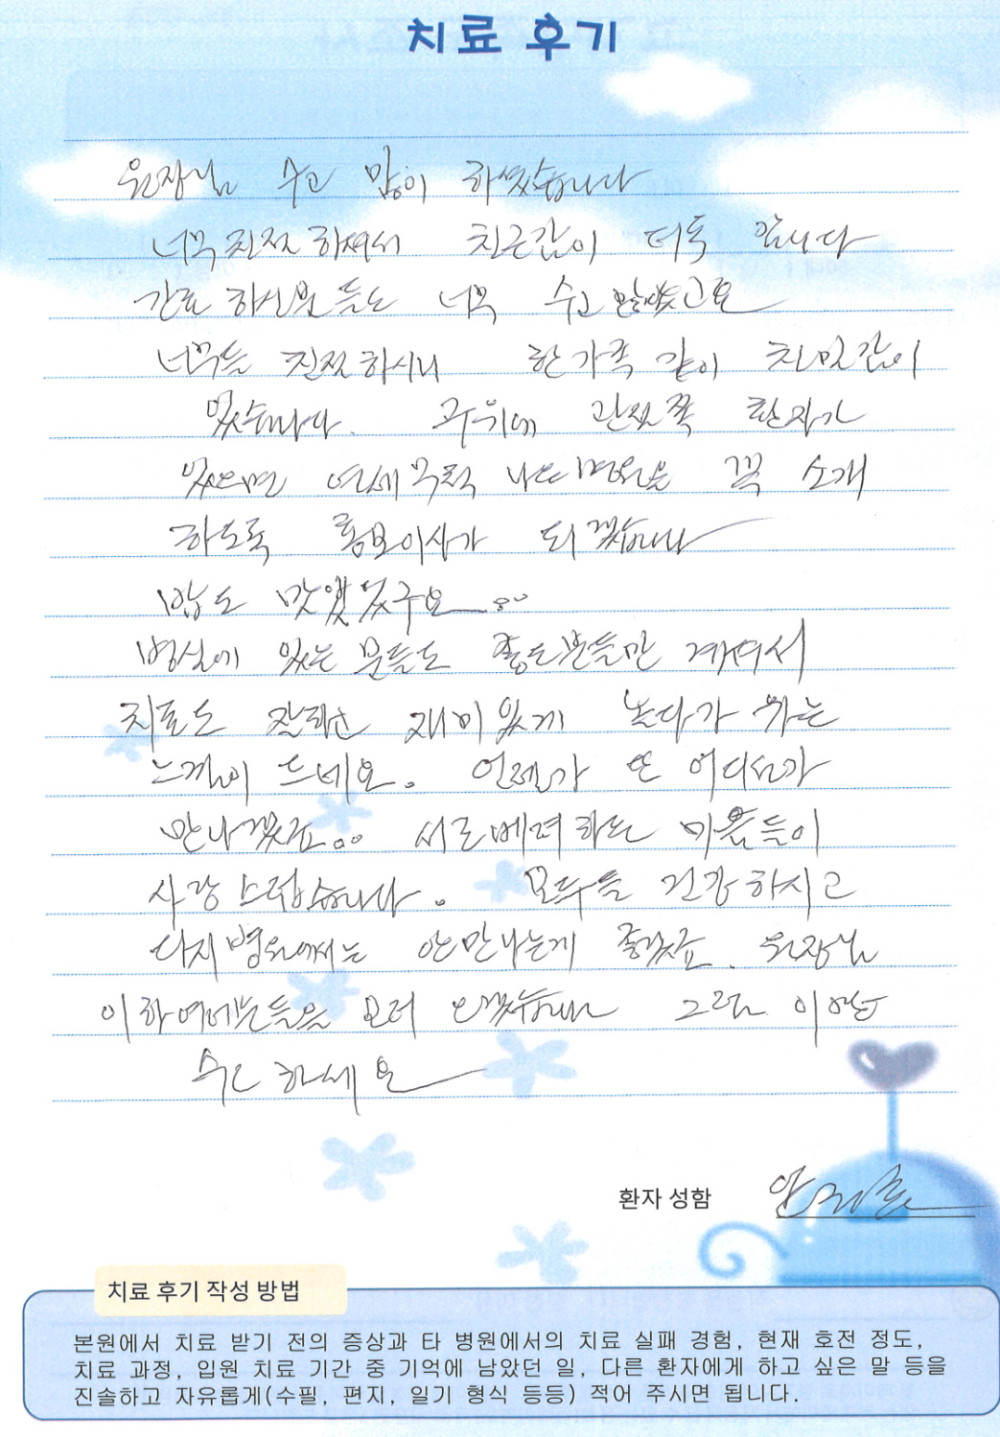 치료 후기
원장님 수고 많이 하셨습니다
너무 친절하셔서 친근감이 더욱 갑니다
간호 하신분들도 너무 수고 많았고요
너무들 친절하시니 한가족 같이 친밋감이
있습니다. 주위에 관절쪽 환자가
있으면 연세무척 나은병원을 꼭 소개
하도록 홍보이사가 되겠습니다
밥도 맛있었구요
병실에 있는 분들도 좋은분들만 계셔서
치료도 잘하고 재미있게 놀다가 가는
느낌이 드네요. 언젠가 또 어디선가
만나겠죠.. 서로 베려하는 마음들이
사랑스럽습니다. 모두들 건강하시고
다시 병원에서는 안만나는게 좋겠죠. 원장님
이하 여러분들을 보러 오겠습니다 그럼 이만
수고하세요
환자 성함
치료 후기 작성 방법
본원에서 치료 받기 전의 증상과 타 병원에서의 치료 실패 경험, 현재 호전 정도,
치료 과정, 입원 치료 기간 중 기억에 남았던 일, 다른 환자에게 하고 싶은 말 등을
진솔하고 자유롭게(수필, 편지, 일기 형식 등등) 적어 주시면 됩니다.